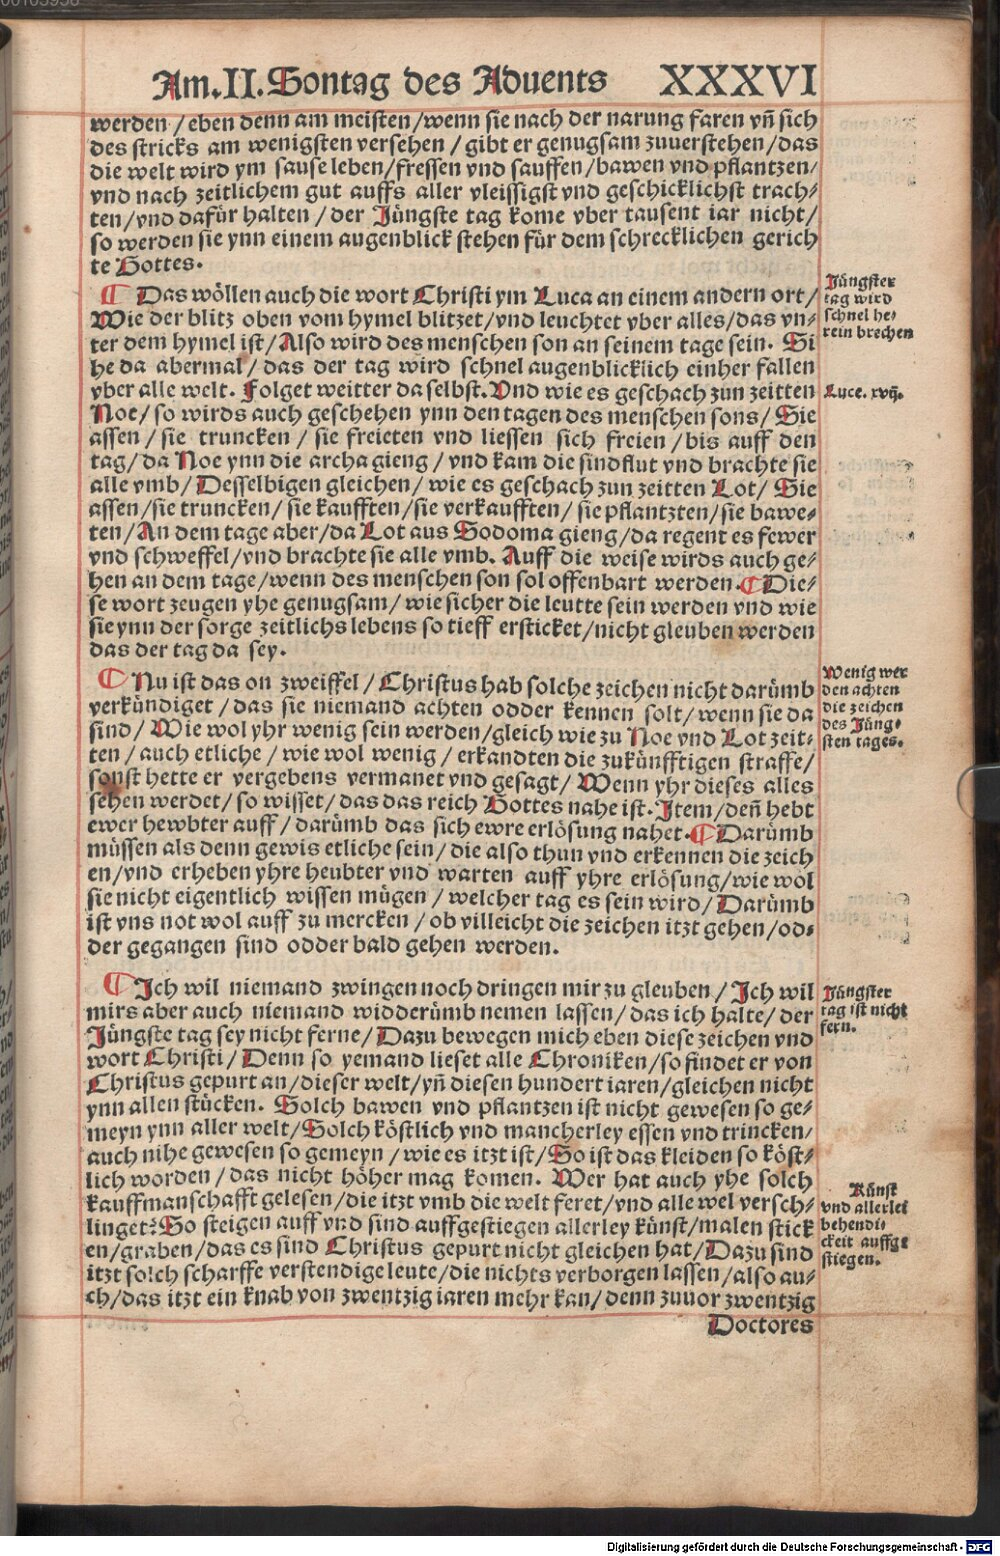 Am.II.Sontag des Aduents XXXVI
werden / eben denn am meisten / wenn sie nach der narung faren vn̄ sich
des stricks am wenigsten versehen / gibt er genugsam zuuerstehen / das
die welt wird ym sause leben / fressen vnd sauffen / bawen vnd pflantzen /
vnd nach zeitlichem gut auffs aller vleissigst vnd geschicklichst trach⸗
ten / vnd dafür halten / der Jüngste tag kome vber tausent iar nicht /
so werden sie ynn einem augenblick stehen für dem schrecklichen gerich
te Gottes.
¶ Das wöllen auch die wort Christi ym Luca an einem andern ort /
Wie der blitz oben vom hymel blitzet / vnd leuchtet vber alles / das vn⸗
ter dem hymel ist / Also wird des menschen son an seinem tage sein. Si
he da abermal / das der tag wird schnel augenblicklich einher fallen
vber alle welt. Folget weitter daselbst. Vnd wie es geschach zun zeitten
Noe / so wirds auch geschehen ynn den tagen des menschen sons / Sie
assen / sie truncken / sie freieten vnd liessen sich freien / bis auff den
tag / da Noe ynn die archa gieng / vnd kam die sindflut vnd brachte sie
alle vmb / Desselbigen gleichen / wie es geschach zun zeitten Lot / Sie
assen / sie truncken / sie kaufften / sie verkaufften / sie pflantzten / sie bawe⸗
ten / An dem tage aber / da Lot aus Sodoma gieng / da regent es fewer
vnd schweffel / vnd brachte sie alle vmb. Auff die weise wirds auch ge⸗
hen an dem tage / wenn des menschen son sol offenbart werden. ¶ Die⸗
se wort zeugen yhe genugsam / wie sicher die leutte sein werden vnd wie
sie ynn der sorge zeitlichs lebens so tieff ersticket / nicht gleuben werden
das der tag da sey.
¶ Nu ist das on zweiffel / Christus hab solche zeichen nicht darümb
verkündiget / das sie niemand achten odder kennen solt / wenn sie da
sind / Wie wol yhr wenig sein werden / gleich wie zu Noe vnd Lot zeit⸗
ten / auch etliche / wie wol wenig / erkandten die zukünfftigen straffe /
sonst hette er vergebens vermanet vnd gesagt / Wenn yhr dieses alles
sehen werdet / so wisset / das das reich Gottes nahe ist. Item / den̄ hebt
ewer hewbter auff / darümb das sich ewre erlösung nahet. ¶ Darümb
müssen als denn gewis etliche sein / die also thun vnd erkennen die zeich
en / vnd erheben yhre heubter vnd warten auff yhre erlösung / wie wol
sie nicht eigentlich wissen mügen / welcher tag es sein wird / Darümb
ist vns not wol auff zu mercken / ob villeicht die zeichen itzt gehen / od⸗
der gegangen sind odder bald gehen werden.
¶ Ich wil niemand zwingen noch dringen mir zu gleuben / Ich wil
mirs aber auch niemand widderümb nemen lassen / das ich halte / der
Jüngste tag sey nicht ferne / Dazu bewegen mich eben diese zeichen vnd
wort Christi / Denn so yemand lieset alle Chroniken / so findet er von
Christus gepurt an / dieser welt / yn̄ diesen hundert iaren / gleichen nicht
ynn allen stücken. Solch bawen vnd pflantzen ist nicht gewesen so ge⸗
meyn ynn aller welt / Solch köstlich vnd mancherley essen vnd trincken /
auch nihe gewesen so gemeyn / wie es itzt ist / So ist das kleiden so köst⸗
lich worden / das nicht höher mag komen. Wer hat auch yhe solch
kauffmanschafft gelesen / die itzt vmb die welt feret / vnd alle wel versch⸗
linget? So steigen auff vnd sind auffgestiegen allerley künst / malen stick
en / graben / das es sind Christus gepurt nicht gleichen hat / Dazu sind
itzt solch scharffe verstendige leute / die nichts verborgen lassen / also au⸗
ch / das itzt ein knab von zwentzig iaren mehr kan / denn zuuor zwentzig
Doctores
Jüngster
tag wird
schnel he⸗
rein brechen
Luce. xvij.
Wenig wer
den achten
die zeichen
des Jüng⸗
sten tages.
Jüngster
tag ist nicht
fern.
Künst
vnd allerlei
behendi⸗
ckeit auffge
stiegen.
Digitalisierung gefördert durch die Deutsche Forschungsgemeinschaft - DFG